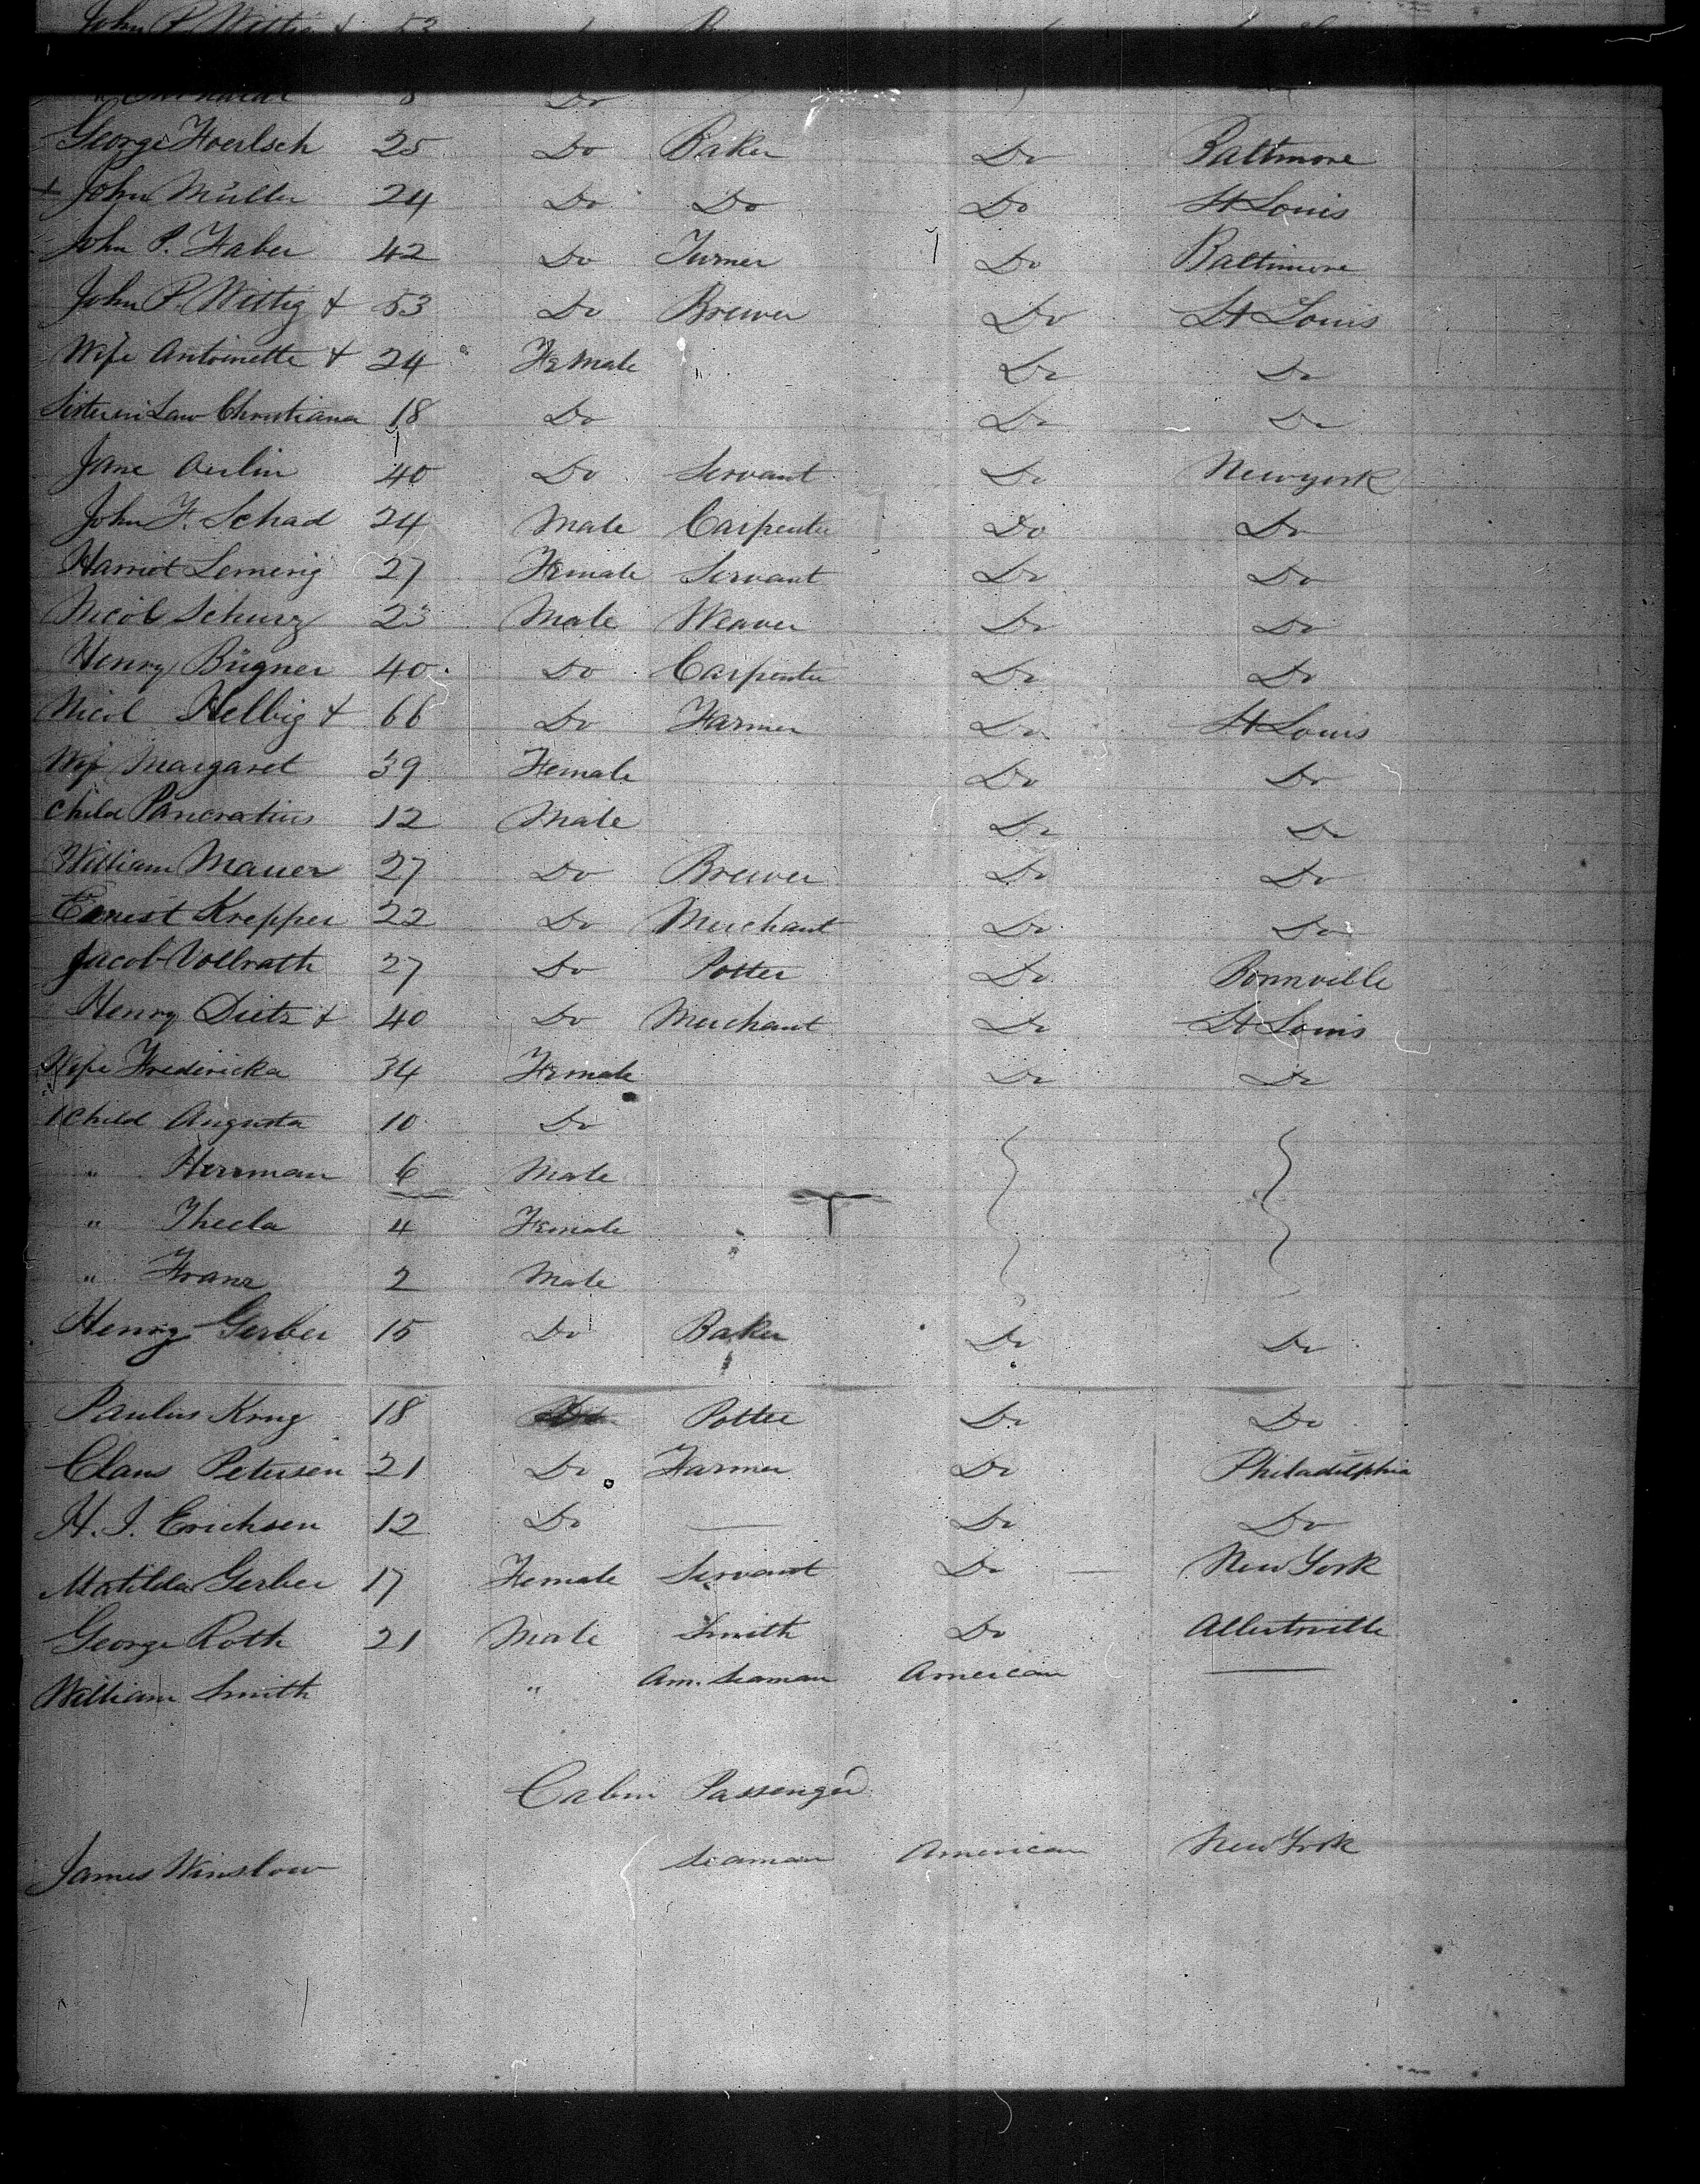 John P. Wittig + 53
8 Do
George Hoerlsch 25 Do Baker Do Baltimore
+ John Müller 24 Do Do Do St Louis
John P. Faber 42 Do Turner Do Baltimore
John P. Wittig + 53 Do Brewer Do St Louis
Wife Antoinette + 24 Female " Do Do
Sister in Law Christiana 18 Do Do Do
Jane 40 Do Servant Do Newyork
John F. Schad 24 Male Carpenter Do Do
Harriet 27 Female Servant Do Do
Nicol Schurz 23 Male Weaver Do Do
Henry Bügner 40 Do Carpenter Do Do
Nicol Helbig + 66 Do Farmer Do St Louis
Wife Margaret 39 Female Do Do
Child Pancratius 12 Male Do Do
William Mauer 27 Do Brewer Do Do
Ernest Krepper 22 Do Merchant Do Do
Jacob Vollrath 27 Do Potter Do Bonnville
Henry Dietz + 40 Do Merchant Do St Louis
Wife Fredericka 34 Female Do Do
Child Augusta 10 Do
" Herrman 6 Male
" Thecla 4 Female
" Franz 2 Male
Henry Gerber 15 Do Baker Do Do
Paulus Krug 18 Do Potter Do Do
Claus Petersen 21 Do Farmer Do Philadelphia
H. J. Erichsen 12 Do — Do Do
Matilda Gerber 17 Female Servant Do — New York
George Roth 21 Male Smith Do Albertsville
William Smith " Am. Seaman American —
Cabin Passenger
James Winslow Seaman American New York